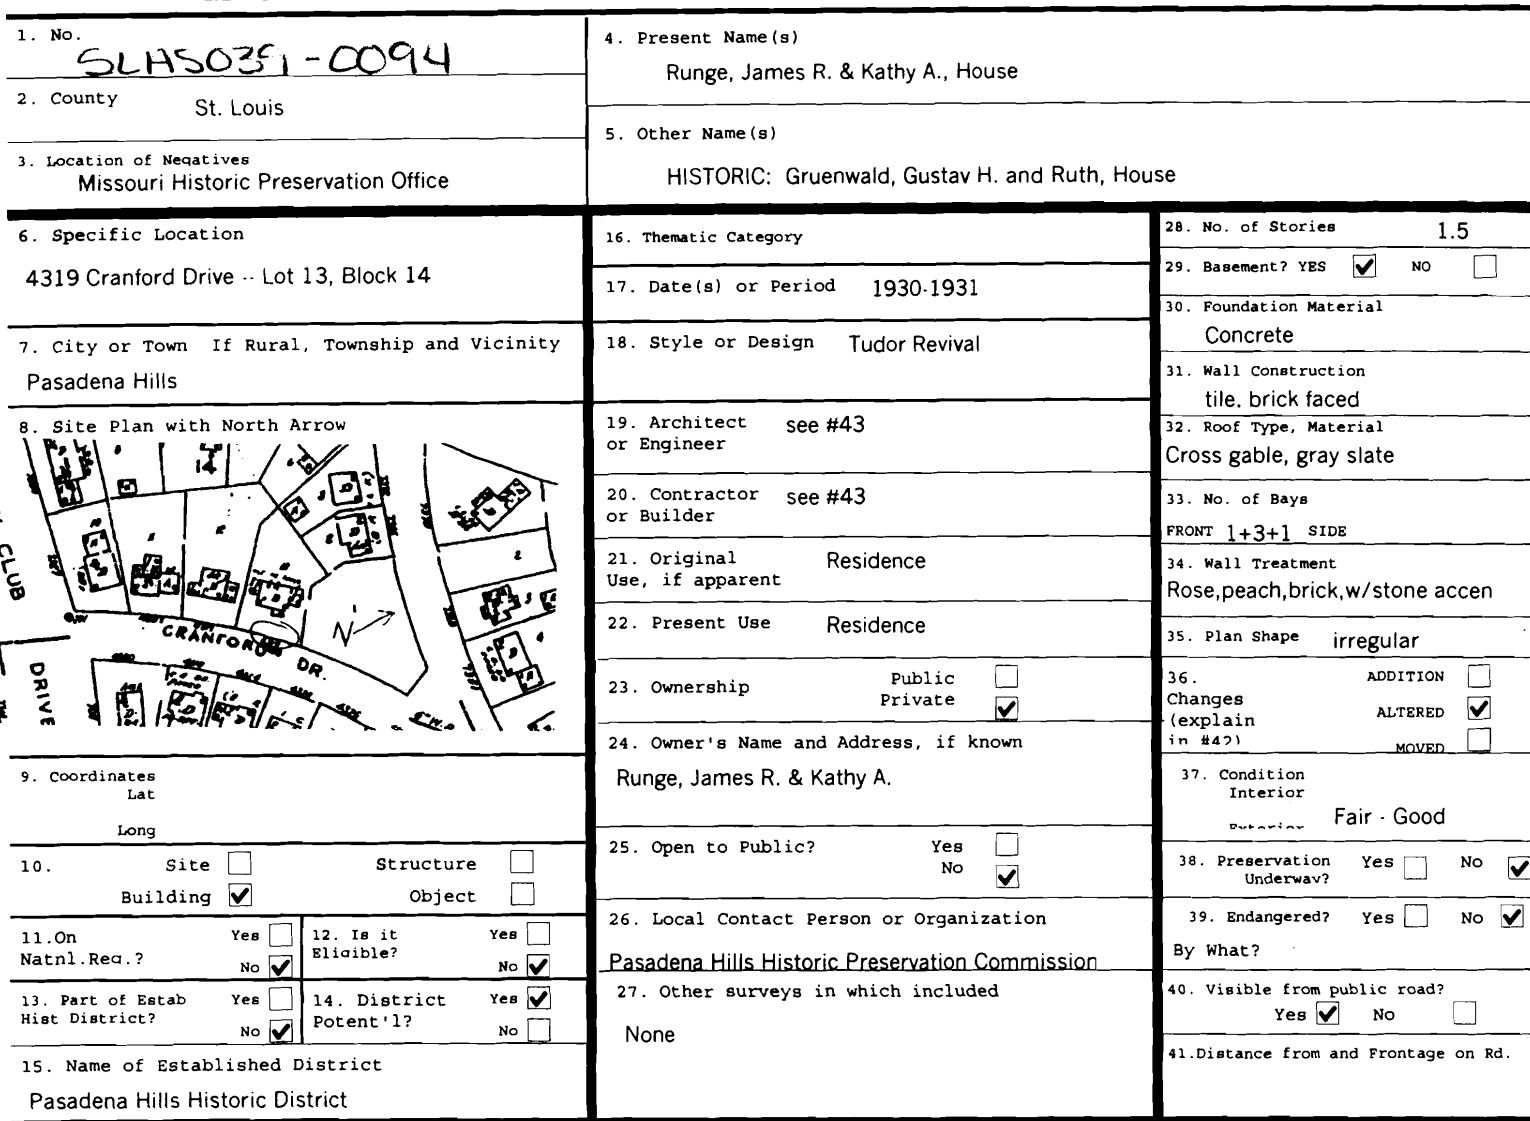 1. No.
SLAS0351-0094
2. County St. Louis
3. Location of Neqatives
Missouri Historic Preservation Office
4. Present Name(s)
Runge, James R. & Kathy A., House
5. Other Name(s)
HISTORIC: Gruenwald, Gustav H. and Ruth, House
6. Specific Location
4319 Cranford Drive -- Lot 13, Block 14
7. City or Town If Rural, Township and Vicinity
Pasadena Hills
8. Site Plan with North Arrow
14
CLUB
DRIVE
CRANFORD DR.
N
9. Coordinates
Lat
Long
10. Site Structure
Building Object
11.On Yes
Natnl.Reg.? No
12. Is it Yes
Eligible? No
13. Part of Estab Yes
Hist District? No
14. District Yes
Potent'l? No
15. Name of Established District
Pasadena Hills Historic District
16. Thematic Category
17. Date(s) or Period 1930-1931
18. Style or Design Tudor Revival
19. Architect see #43
or Engineer
20. Contractor see #43
or Builder
21. Original Residence
Use, if apparent
22. Present Use Residence
23. Ownership Public
Private
24. Owner's Name and Address, if known
Runge, James R. & Kathy A.
25. Open to Public? Yes
No
26. Local Contact Person or Organization
Pasadena Hills Historic Preservation Commission
27. Other surveys in which included
None
28. No. of Stories 1.5
29. Basement? YES NO
30. Foundation Material
Concrete
31. Wall Construction
tile. brick faced
32. Roof Type, Material
Cross gable, gray slate
33. No. of Bays
FRONT 1+3+1 SIDE
34. Wall Treatment
Rose,peach,brick,w/stone accen
35. Plan Shape irregular
36. ADDITION
Changes
(explain ALTERED
in #42) MOVED
37. Condition
Interior
Exterior Fair - Good
38. Preservation Yes No
Underway?
39. Endangered? Yes No
By What?
40. Visible from public road?
Yes No
41.Distance from and Frontage on Rd.